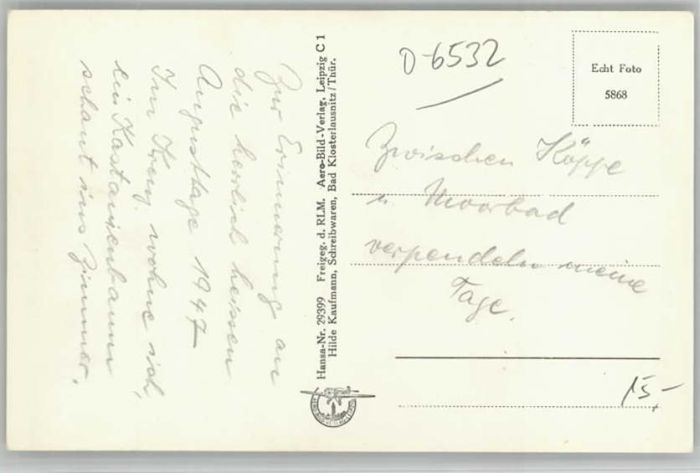 Zur Erinnerung an
die herrlich heissen
Augusttage 1947
Im Krug wohne ich,
ein Kastanienbaum
schaut ins Zimmer.
Hansa-Nr. 29399 Freigeg. d. RLM. Aero-Bild-Verlag, Leipzig C 1
Hilde Kaufmann, Schreibwaren, Bad Klosterlausnitz/Thür.
D-6532
Echt Foto
5868
Zwischen Köppe
u. Moorbad
verpendeln meine
Tage.
15,-